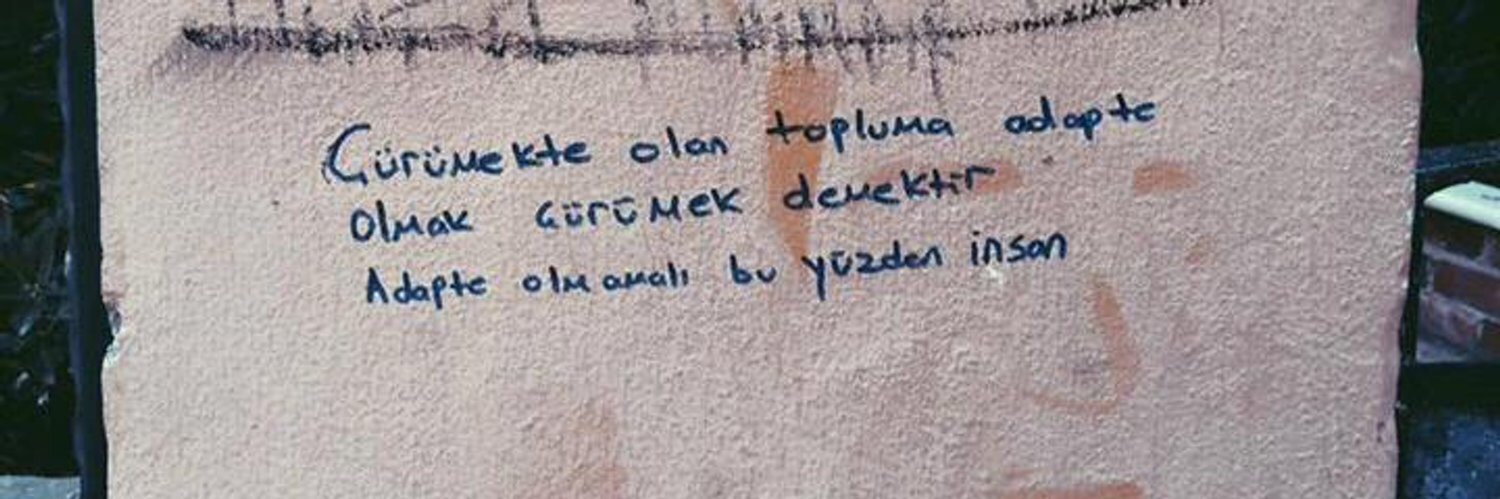 Çürümekte olan topluma adapte
Olmak çürümek demektir
Adapte olmamalı bu yüzden insan